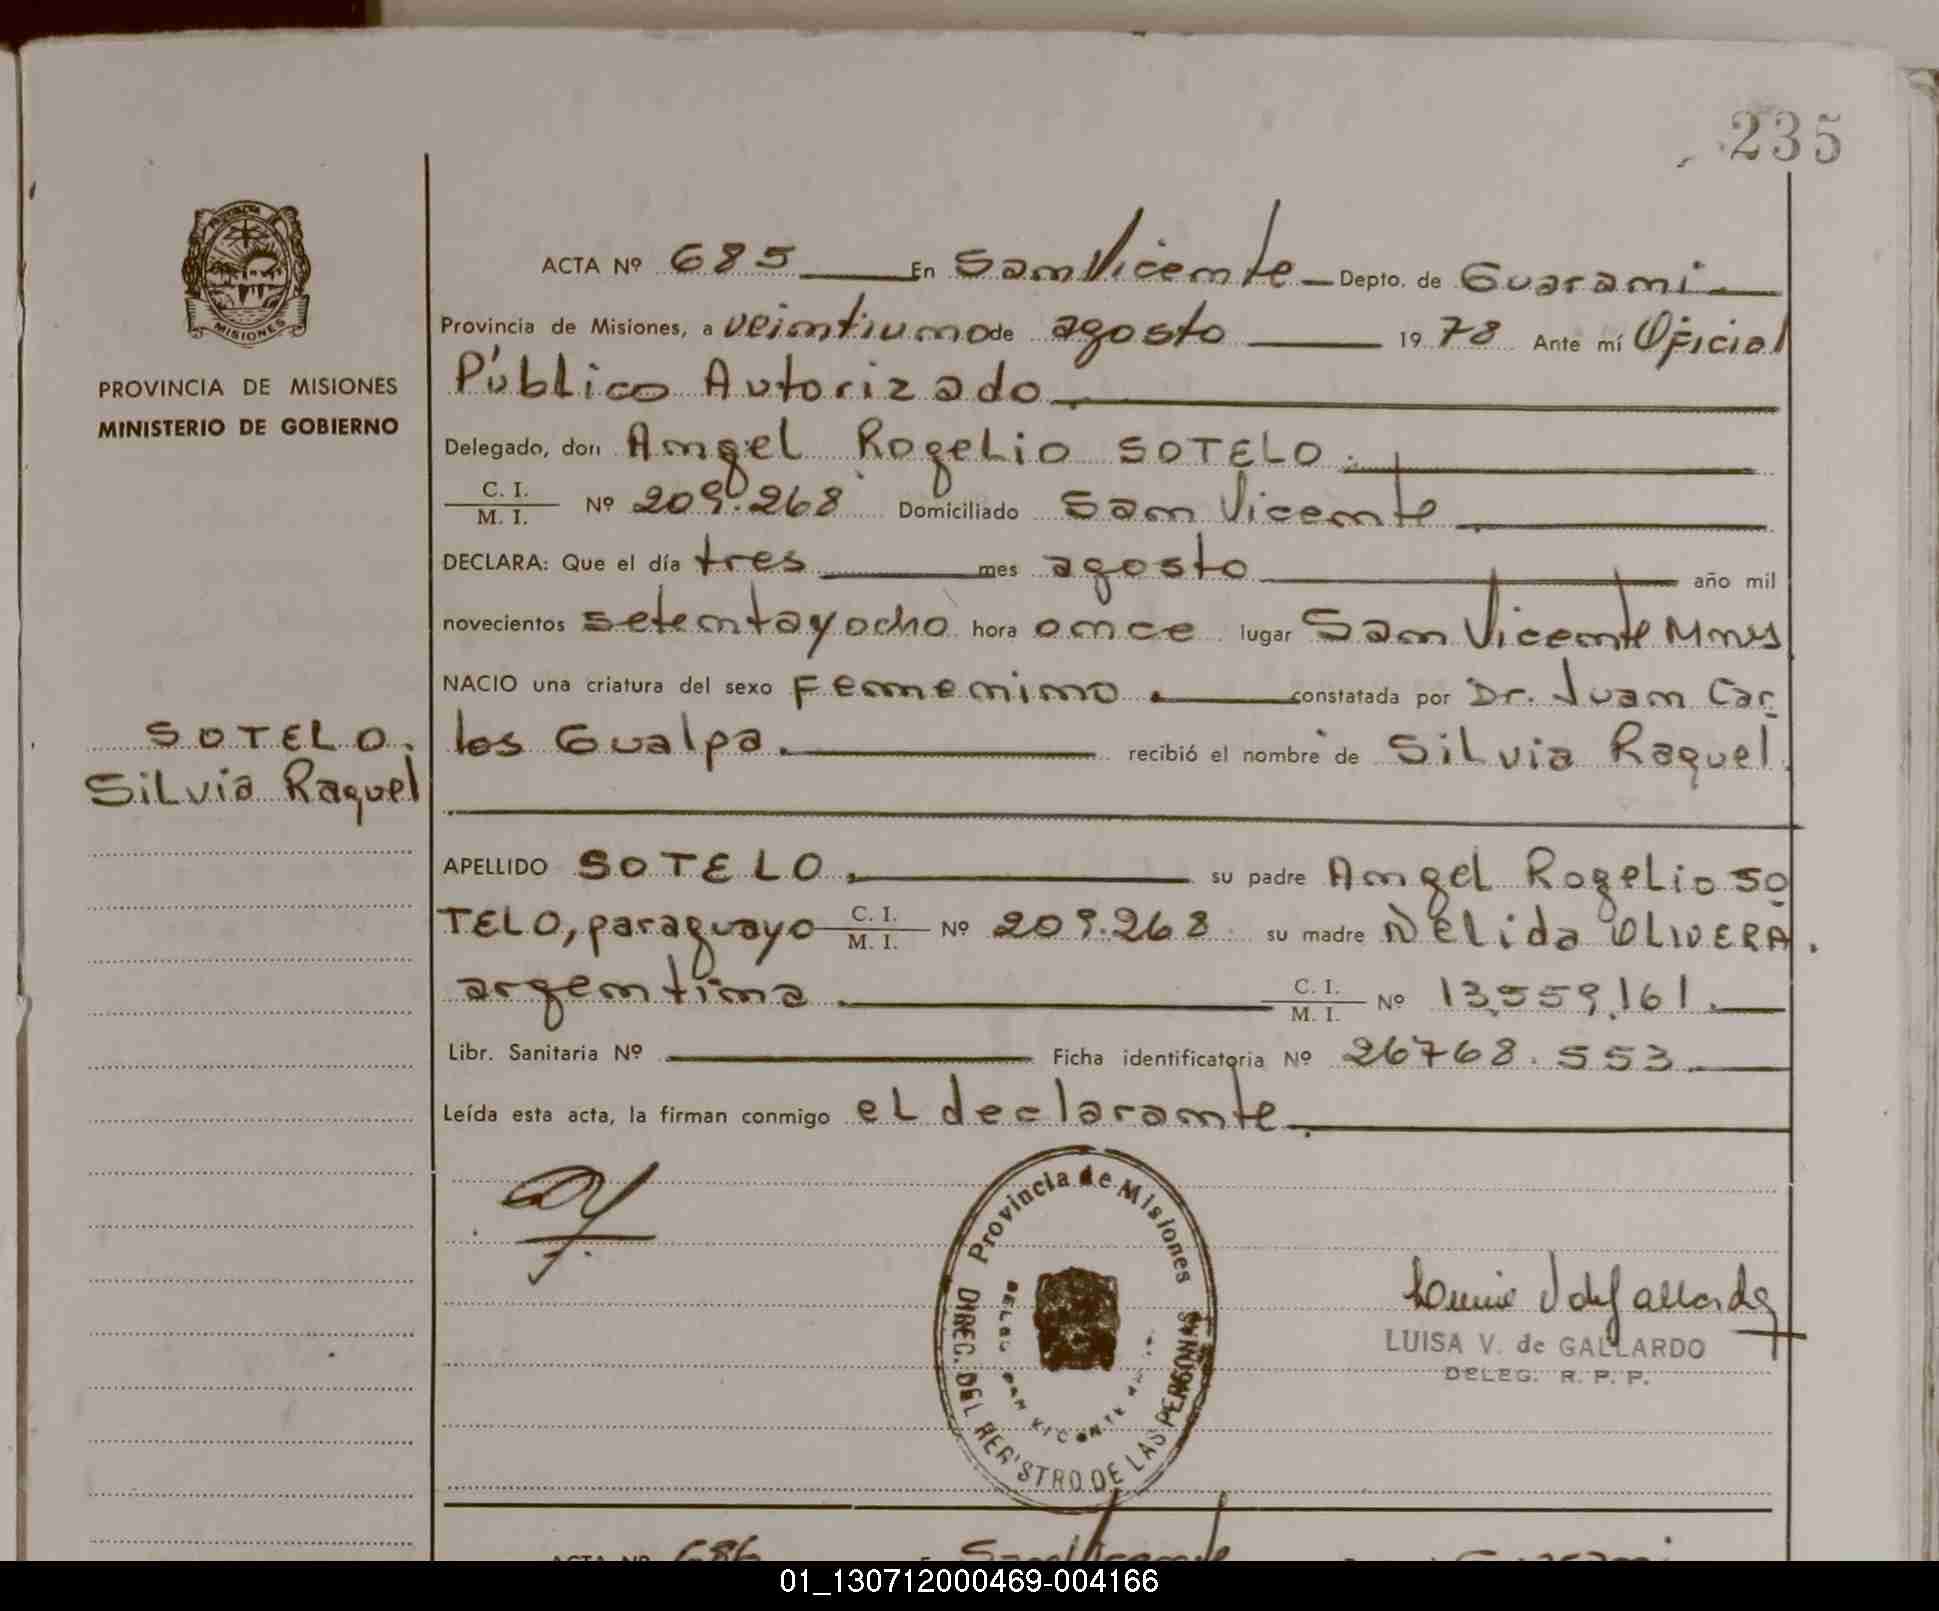 235
PROVINCIA
MISIONES
PROVINCIA DE MISIONES
MINISTERIO DE GOBIERNO
SOTELO.
Silvia Raquel
ACTA Nº 685 En San Vicente Depto. de Guaraní
Provincia de Misiones, a veintiuno de agosto 1978 Ante mí Oficial
Público Autorizado
Delegado, don Angel Rogelio SOTELO.
C. I.
M. I. Nº 209.268 Domiciliado San Vicente
DECLARA: Que el día tres mes agosto año mil
novecientos setentayocho hora once lugar San Vicente Mnes
NACIO una criatura del sexo Femenino. constatada por Dr. Juan Car
los Gualpa. recibió el nombre de Silvia Raquel.
APELLIDO SOTELO. su padre Angel Rogelio SO
TELO, paraguayo C. I. M. I. Nº 209.268 su madre Nélida OLIVERA.
argentina. C. I. M. I. Nº 13.559.161.
Libr. Sanitaria Nº Ficha identificatoria Nº 26768.553.
Leída esta acta, la firman conmigo el declarante.
Provincia de Misiones
DIREC. DEL REGISTRO DE LAS PERSONAS
LUISA V. de GALLARDO
DELEG. R. P. P.
ACTA Nº 686 San Vicente Guaraní
01_130712000469-004166